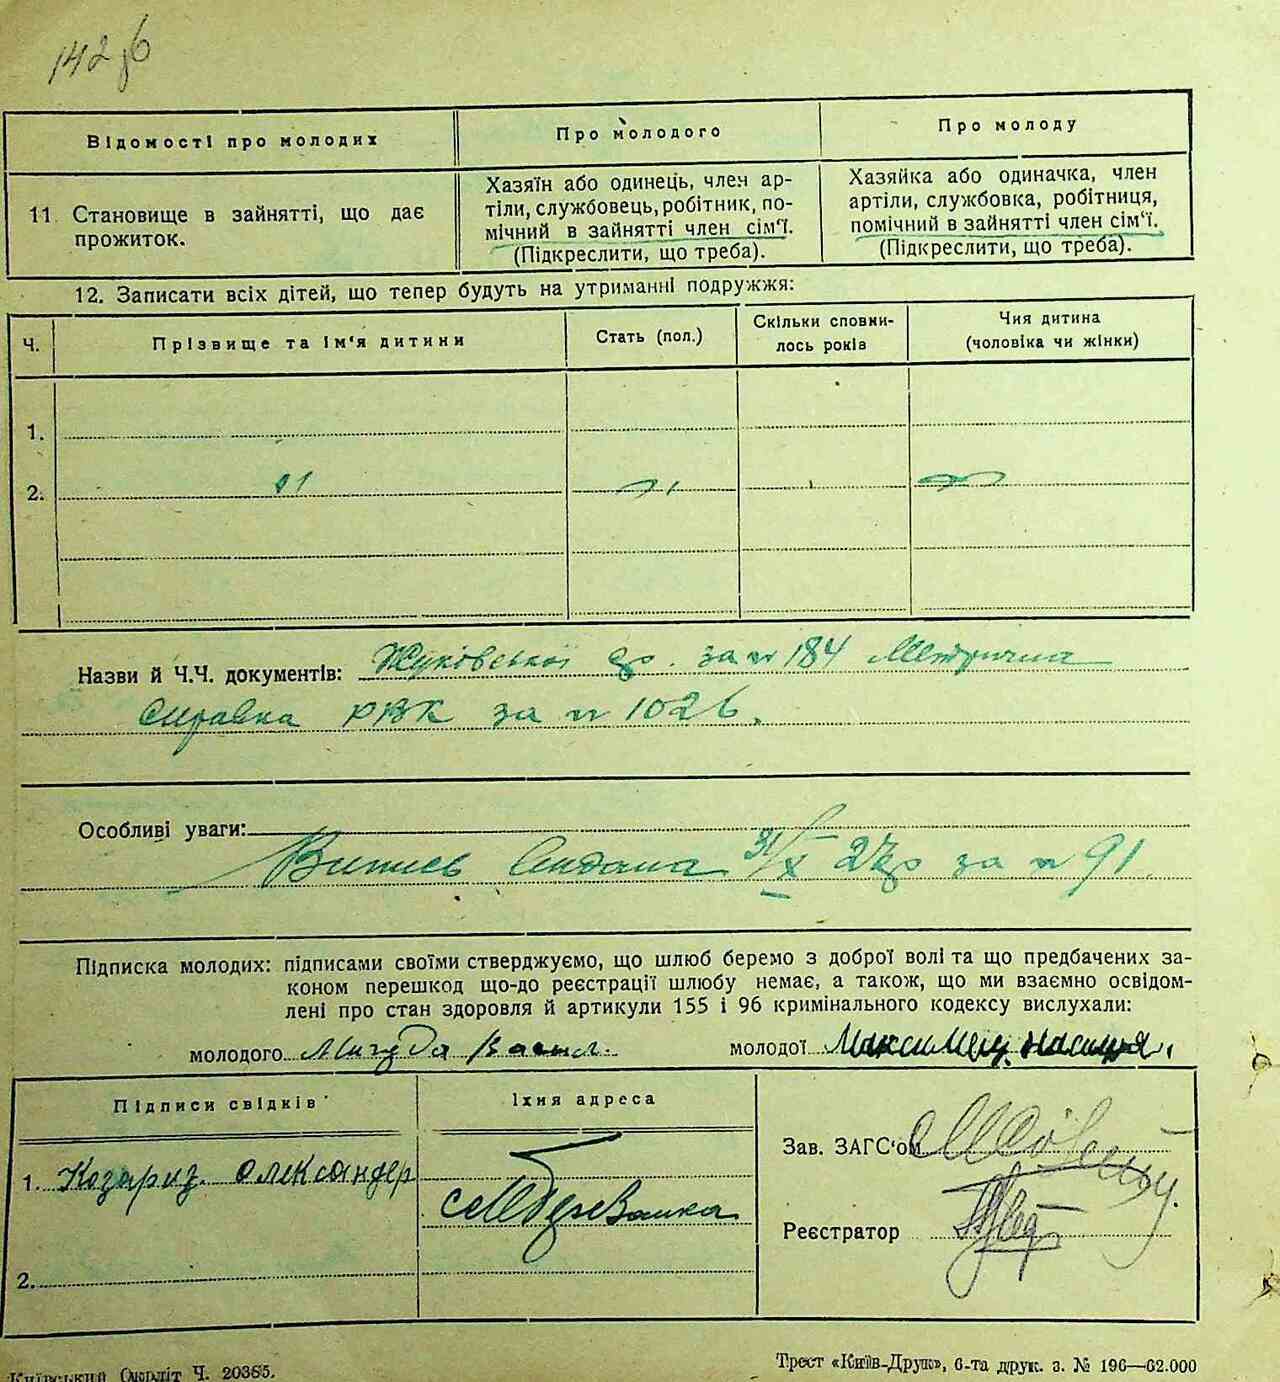 142
Відомості про молодих
Про молодого
Про молоду
11. Становище в зайнятті, що дає
прожиток.
Хазяїн або одинець, член ар-
тіли, службовець, робітник, по-
мічний в зайнятті член сім'ї.
(Підкреслити, що треба).
Хазяйка або одиначка, член
артіли, службовка, робітниця,
помічний в зайнятті член сім'ї.
(Підкреслити, що треба).
12. Записати всіх дітей, що тепер будуть на утриманні подружжя:
Ч.
Прізвище та ім'я дитини
Стать (пол.)
Скільки сповни-
лось років
Чия дитина
(чоловіка чи жінки)
1.
2.
Назви й Ч.Ч. документів: Жуковської за № 184 Метрична
Справка РВК за № 1026.
Особливі уваги:
Випись за № 91
Підписка молодих: підписами своїми стверджуємо, що шлюб беремо з доброї волі та що предбачених за-
коном перешкод що-до реєстрації шлюбу немає, а також, що ми взаємно освідом-
лені про стан здоровля й артикули 155 і 96 кримінального кодексу вислухали:
молодого
молодої
Підписи свідків
Їхня адреса
1. Козариз. Олександер
2.
Зав. ЗАГС'ом
Реєстратор
Київський Окрліт Ч. 20385.
Трест «Київ-Друк», 6-та друк. з. № 196—62.000